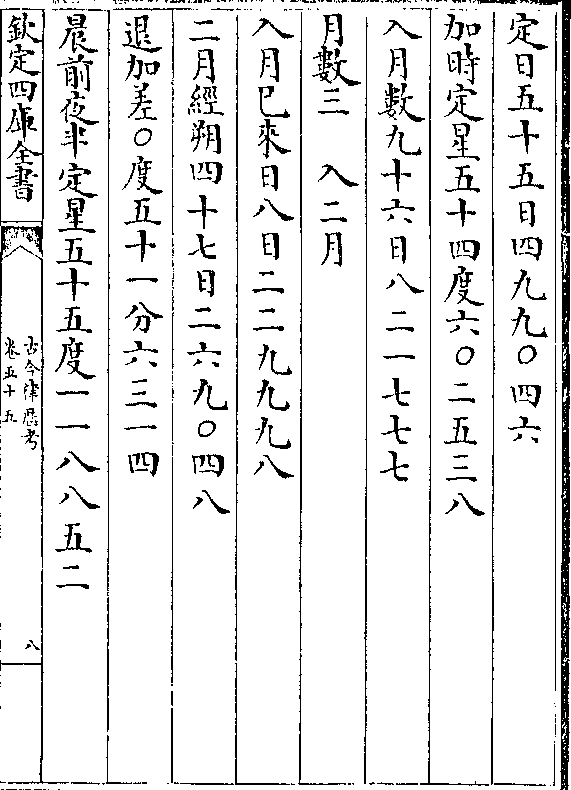 定日五十五日四九九〇四六
加時定星五十四度六〇二五三八
入月數九十六日八二一七七七
月數三　入二月
入月已來日八日二二九九九八
二月經朔四十七日二六九〇四八
退加差〇度五十一分六三一四
晨前夜半定星五十五度一一八八五二
欽定四庫全書
古今律歷考
卷五十五
八